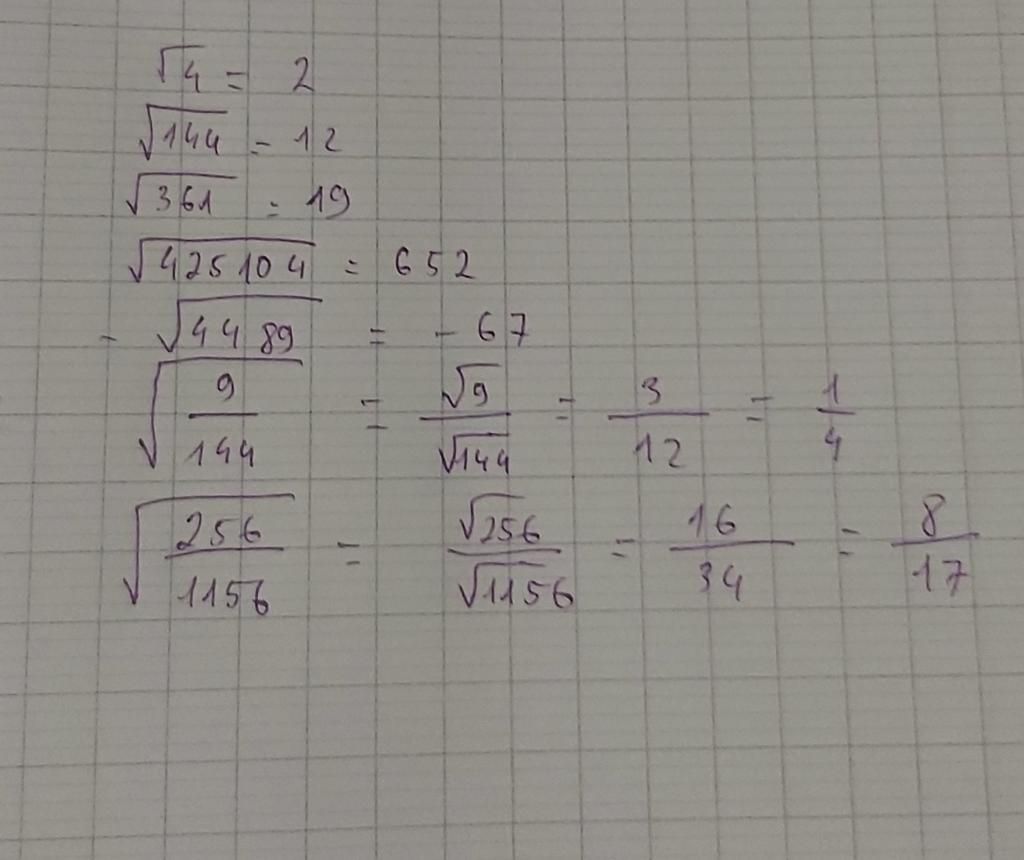 √4 = 2
√144 = 12
√361 = 19
√425104 = 652
- √4489 = - 67
√(9/144) = √9/√144 = 3/12 = 1/4
√(256/1156) = √256/√1156 = 16/34 = 8/17